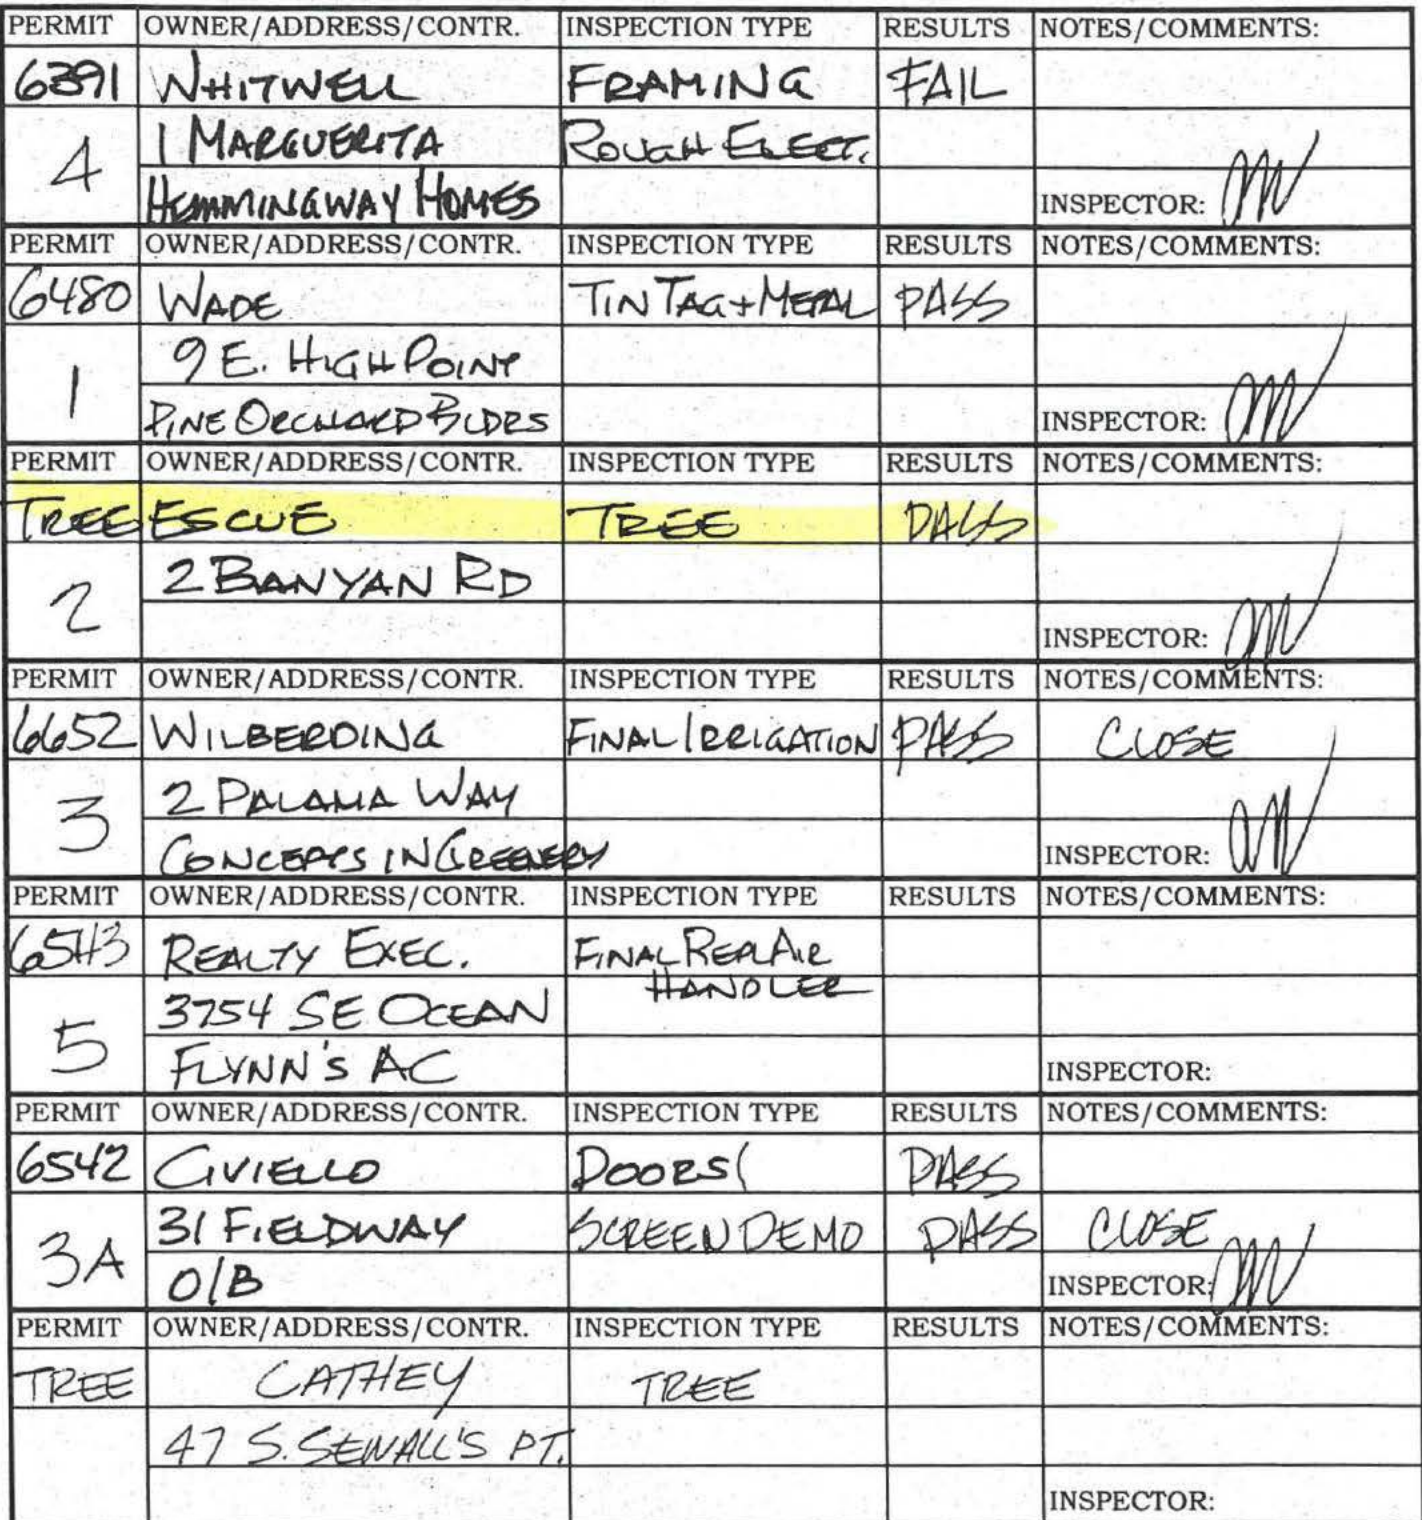 PERMIT OWNER/ADDRESS/CONTR. INSPECTION TYPE RESULTS NOTES/COMMENTS:
6391 WHITWELL FRAMING FAIL
4 1 MARGUERITA ROUGH ELECT.
HEMMINGWAY HOMES INSPECTOR:
PERMIT OWNER/ADDRESS/CONTR. INSPECTION TYPE RESULTS NOTES/COMMENTS:
6480 WADE TIN TAG + METAL PASS
1 9 E. HIGH POINT
PINE ORCHARD BLDRS INSPECTOR:
PERMIT OWNER/ADDRESS/CONTR. INSPECTION TYPE RESULTS NOTES/COMMENTS:
TREE ESCUE TREE PASS
2 2 BANYAN RD
INSPECTOR:
PERMIT OWNER/ADDRESS/CONTR. INSPECTION TYPE RESULTS NOTES/COMMENTS:
6652 WILBERDING FINAL IRRIGATION PASS CLOSE
3 2 PALAMA WAY
CONCEPTS IN GREENERY INSPECTOR:
PERMIT OWNER/ADDRESS/CONTR. INSPECTION TYPE RESULTS NOTES/COMMENTS:
6543 REALTY EXEC. FINAL REPL AIR
HANDLER
5 3754 SE OCEAN
FLYNN'S AC INSPECTOR:
PERMIT OWNER/ADDRESS/CONTR. INSPECTION TYPE RESULTS NOTES/COMMENTS:
6542 CIVIELLO DOORS/ PASS
3A 31 FIELDWAY SCREEN DEMO PASS CLOSE
O/B INSPECTOR:
PERMIT OWNER/ADDRESS/CONTR. INSPECTION TYPE RESULTS NOTES/COMMENTS:
TREE CATHEY TREE
47 S. SEWALL'S PT.
INSPECTOR: